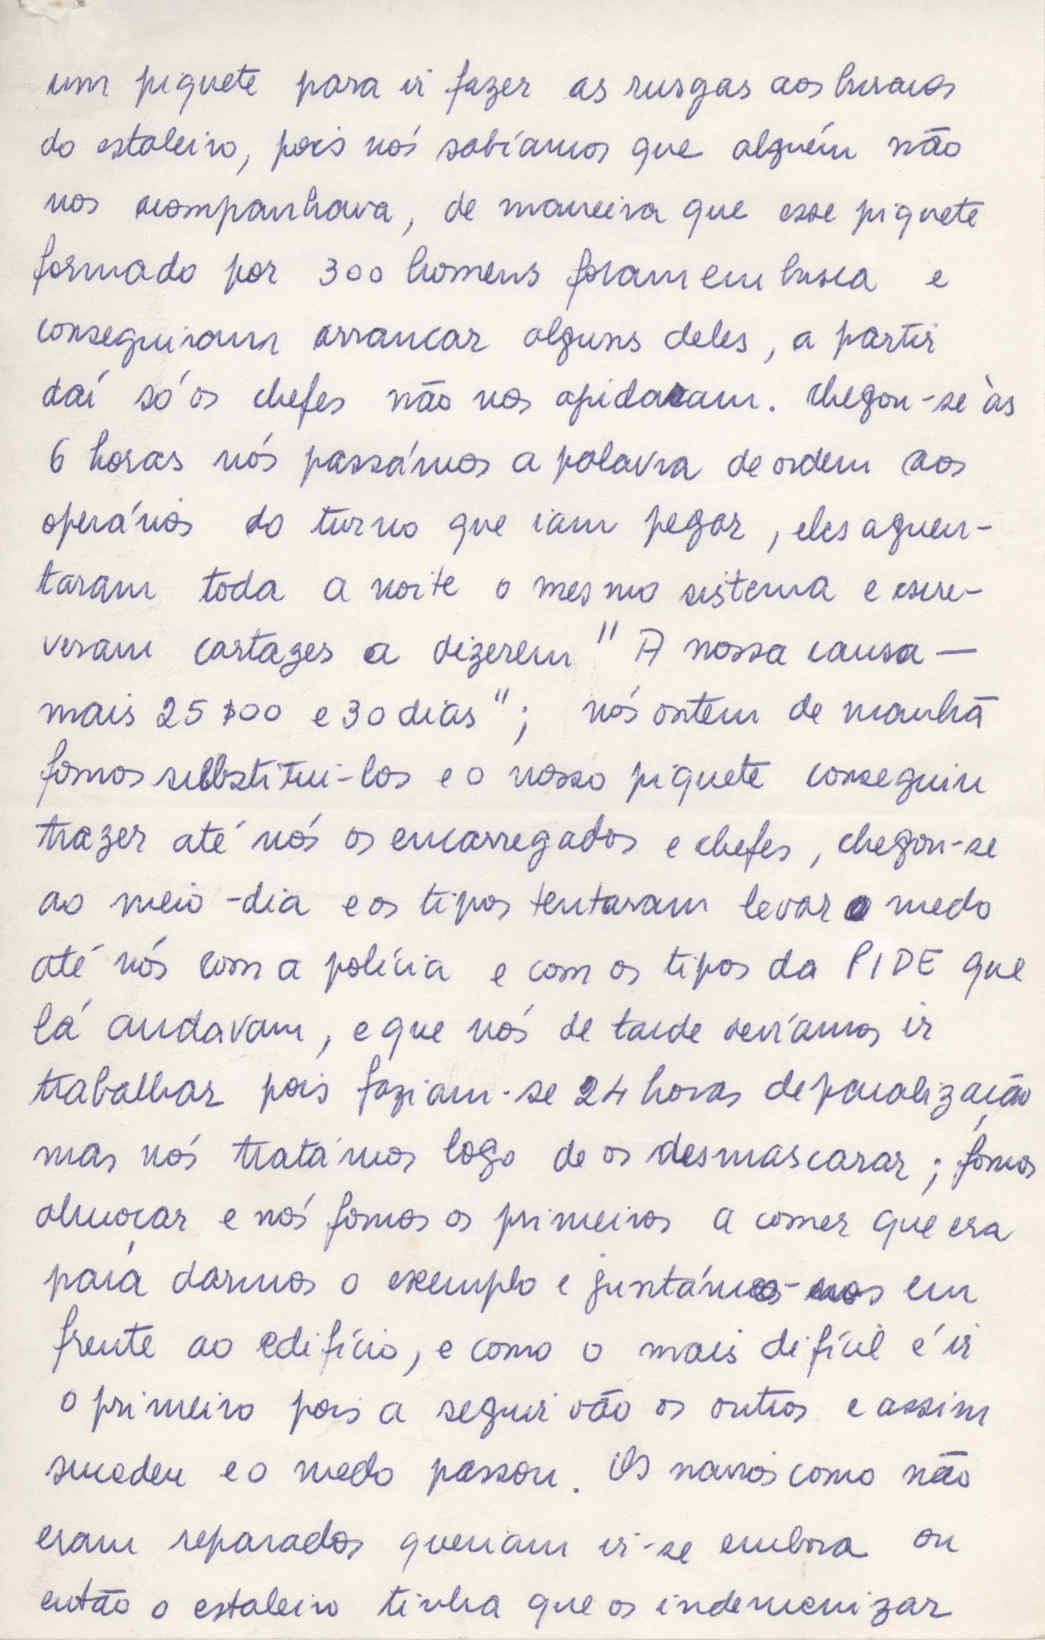 um piquete para ir fazer as rusgas aos buracos
do estaleiro, pois nós sabíamos que alguém não
nos acompanhava, de maneira que esse piquete
formado por 300 homens foram em busca e
conseguiram arrancar alguns deles, a partir
daí só os chefes não nos apidaram. Chegou-se às
6 horas nós passámos a palavra de ordem aos
operários do turno que iam pegar, eles aguen-
taram toda a noite o mesmo sistema e escre-
veram cartazes a dizerem "A nossa causa —
mais 25$00 e 30 dias"; nós ontem de manhã
fomos substitui-los e o nosso piquete conseguiu
trazer até nós os encarregados e chefes, chegou-se
ao meio-dia e os tipos tentaram levar o medo
até nós com a polícia e com os tipos da PIDE que
lá andavam, e que nós de tarde devíamos ir
trabalhar pois faziam-se 24 horas de paralização
mas nós tratámos logo de os desmascarar; fomos
almoçar e nós fomos os primeiros a comer que era
para darmos o exemplo e juntámos-nos em
frente ao edifício, e como o mais difícil é ir
o primeiro pois a seguir vão os outros e assim
sucedeu e o medo passou. Os navios como não
eram reparados queriam ir-se embora ou
então o estaleiro tinha que os indemenizar